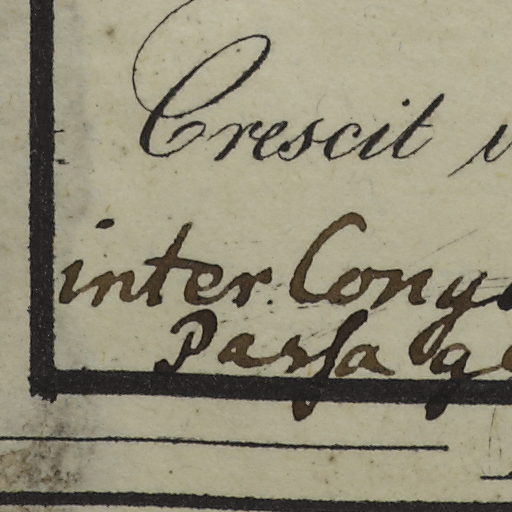 Crescit
inter. Cong
Passage